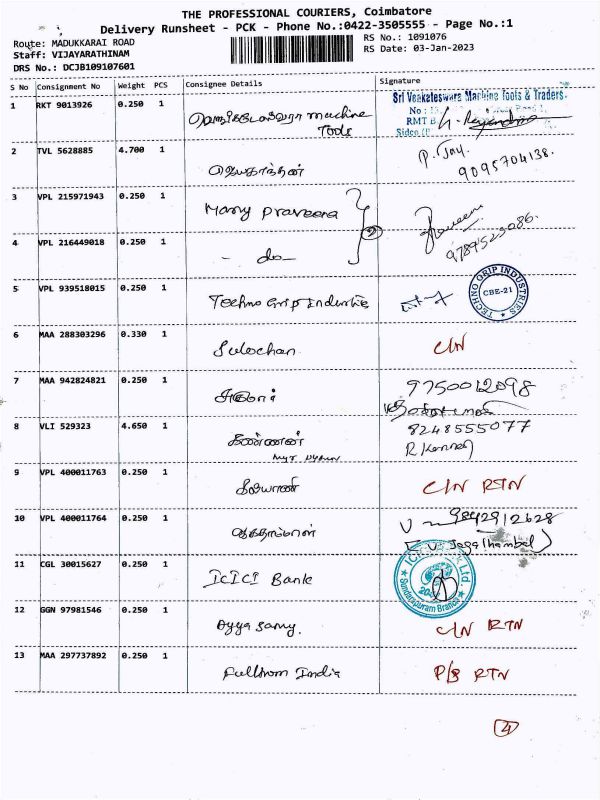 THE PROFESSIONAL COURIERS, Coimbatore
Delivery Runsheet - PCK - Phone No.:0422-3505555 - Page No.:1
Route: MADUKKARAI ROAD
RS No.: 1091076
Staff: VIJAYARATHINAM
RS Date: 03-Jan-2023
DRS No.: DCJB109107601
S No Consignment No Weight PCS Consignee Details Signature
1 RKT 9013926 0.250 1 Machine Tools
Sri Venkateswara Machine Tools & Traders
2 TVL 5628885 4.700 1 ஜெயகாந்தன் P. Jay
9095704138.
3 VPL 215971943 0.250 1 Mary Praveena Praveena
9789523086.
4 VPL 216449018 0.250 1 - do - 2
5 VPL 939518015 0.250 1 Techno Grip Industries
TECHNO GRIP INDUSTRIES CBE-21
6 MAA 288303296 0.330 1 Sulochan C/N
7 MAA 942824821 0.250 1 9750012098
8 VLI 529323 4.650 1 கண்ணன் 8248555077
R Kannan
9 VPL 400011763 0.250 1 கல்யாண் C/N RTN
10 VPL 400011764 0.250 1 ஜகதாம்பாள் 9842912628
(V. Jagathambal)
11 CGL 30015627 0.250 1 ICICI Bank
Sundarapuram Branch
12 GGN 97981546 0.250 1 Ayya Samy. C/N RTN
13 MAA 297737892 0.250 1 Fulltron India P/B RTN
4